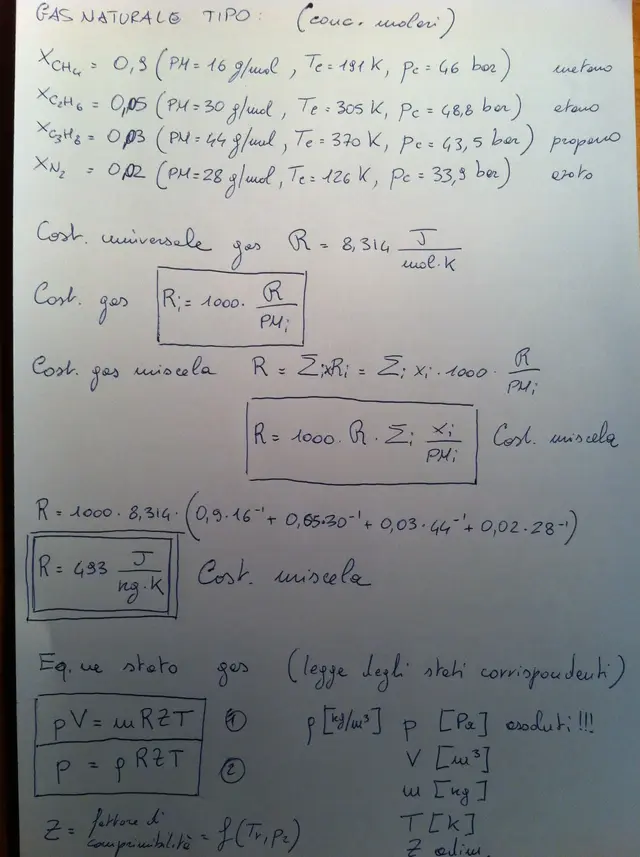 GAS NATURALE TIPO: (conc. molari)
X_CH₄ = 0,9 (PM = 16 g/mol, Tc = 191 K, pc = 46 bar) metano
X_C₂H₆ = 0,05 (PM = 30 g/mol, Tc = 305 K, pc = 48,8 bar) etano
X_C₃H₈ = 0,03 (PM = 44 g/mol, Tc = 370 K, pc = 43,5 bar) propano
X_N₂ = 0,02 (PM = 28 g/mol, Tc = 126 K, pc = 33,9 bar) azoto
Cost. universale gas R = 8,314 J/mol·K
Cost. gas Ri = 1000 · R/PMi
Cost. gas miscela R = Σi xRi = Σi xi · 1000 · R/PMi
R = 1000 · R · Σi xi/PMi Cost. miscela
R = 1000 · 8,314 · (0,9·16⁻¹ + 0,05·30⁻¹ + 0,03·44⁻¹ + 0,02·28⁻¹)
R = 493 J/kg·K Cost. miscela
Eq.ne stato gas (legge degli stati corrispondenti)
pV = mRZT ① ρ [kg/m³] p [Pa] assoluti!!!
p = ρRZT ② V [m³]
m [kg]
T [K]
Z = fattore di comprimibilità = f(Tr, pr)
Z adim.